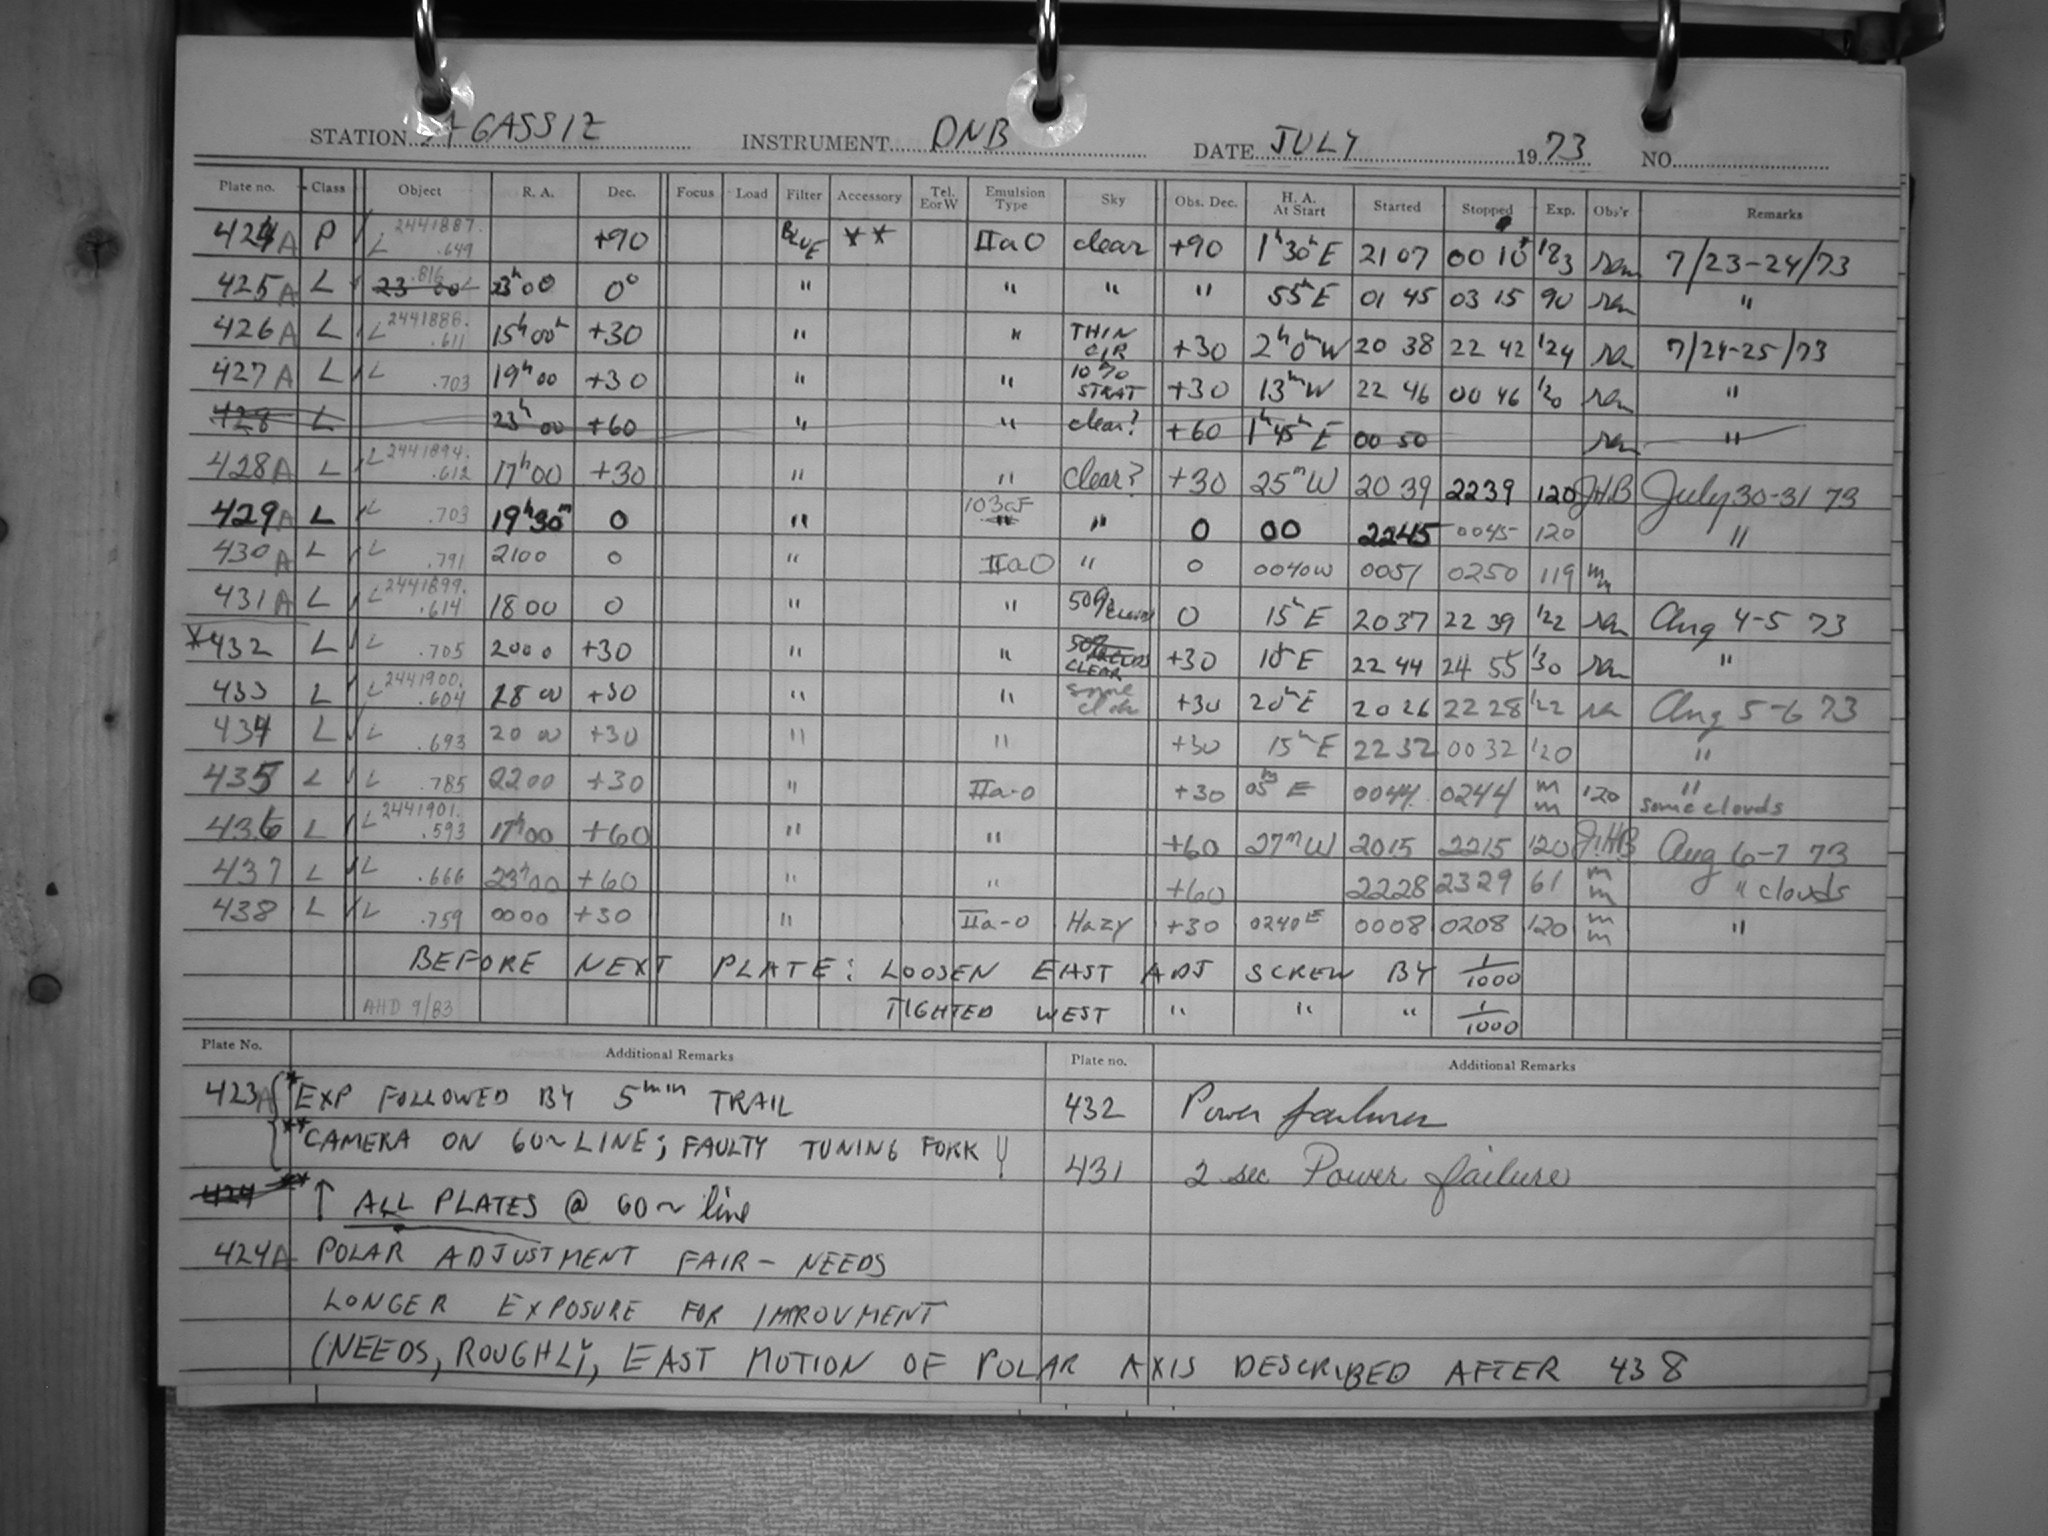 STATION AGASSIZ INSTRUMENT DNB DATE JULY 1973 NO.
Plate no. Class Object R. A. Dec. Focus Load Filter Accessory Tel. E or W Emulsion Type Sky Obs. Dec. H. A. At Start Started Stopped Exp. Obs'r Remarks
424A P L 2441887. .649 +90 BLUE ** IIaO clear +90 1h30m E 21 07 00 10 183 ram 7/23-24/73
425A L 23 00 .816 23h00 0° " " " " 55m E 01 45 03 15 90 ram "
426A L L 2441888. .611 15h00 +30 " " THIN CIR +30 2h0m W 20 38 22 42 124 ra 7/24-25/73
427A L L .703 19h00 +30 " " 10% STRAT +30 13m W 22 46 00 46 120 ram "
428 L 23h00 +60 " " clear? +60 1h45m E 00 50 ram "
428A L L 2441894. .612 17h00 +30 " " clear? +30 25m W 20 39 2239 120 JHB July 30-31 73
429A L L .703 19h30m 0 " 103aF " " 0 00 2245 0045 120 "
430A L L .791 2100 0 " IIaO " 0 0040W 0051 0250 119 mm
431A L L 2441899. .614 18 00 0 " " 50% clouds 0 15m E 20 37 22 39 122 ram Aug 4-5 73
*432 L L .705 20 00 +30 " " 50% CLOUDS CLEAR +30 10m E 22 44 24 55 130 ram "
433 L L 2441900. .604 18 00 +30 " " some clds +30 20m E 20 26 22 28 122 ra Aug 5-6 73
434 L L .693 20 00 +30 " " +30 15m E 22 32 00 32 120 "
435 L L .785 2200 +30 " IIa-O +30 05m E 0044 0244 mm 120 " some clouds
436 L L 2441901. .593 17h00 +60 " " +60 27m W 2015 2215 120 JHB Aug 6-7 73
437 L L .666 23h00 +60 " " +60 2228 2329 61 mm " clouds
438 L L .759 0000 +30 " IIa-O Hazy +30 0240E 0008 0208 120 mm "
BEFORE NEXT PLATE: LOOSEN EAST ADJ SCREW BY 1/1000
AHD 9/83 TIGHTED WEST " " " 1/1000
Plate No. Additional Remarks Plate no. Additional Remarks
423A * EXP FOLLOWED BY 5min TRAIL 432 Power failures
** CAMERA ON 60~ LINE; FAULTY TUNING FORK!! 431 2 sec Power failure
424 ** ↑ ALL PLATES @ 60~ line
424A POLAR ADJUSTMENT FAIR - NEEDS
LONGER EXPOSURE FOR IMPROVMENT
(NEEDS, ROUGHLY, EAST MOTION OF POLAR AXIS DESCRIBED AFTER 438